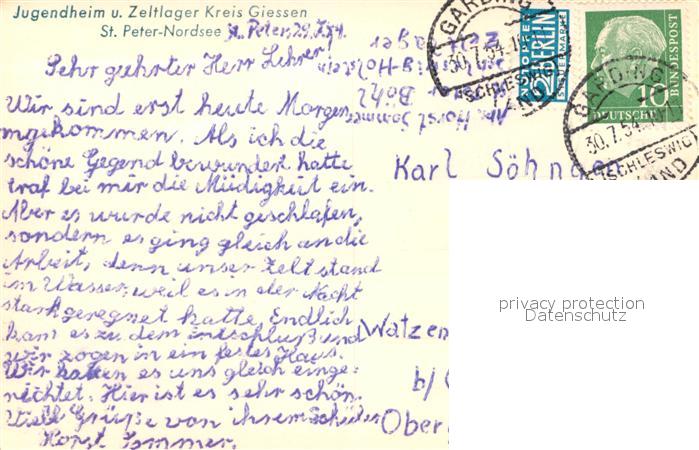 Jugendheim u. Zeltlager Kreis Giessen
St. Peter-Nordsee
St. Peter, 29.7.54.
Sehr geehrter Herr Lehrer!
Wir sind erst heute Morgen
angekommen. Als ich die
schöne Gegend bewundert hatte
traf bei mir die Müdigkeit ein.
Aber es wurde nicht geschlafen,
sondern es ging gleich an die
Arbeit, denn unser Zelt stand
im Wasser, weil es in der Nacht
stark geregnet hatte. Endlich
kam es zu dem Entschluß und
wir zogen in ein festes Haus.
Wir haben es uns gleich einge-
richtet. Hier ist es sehr schön.
Viele Grüße von ihrem Schüler
Horst Sommer.
Abs. Horst Sommer
Böhl
Schleswig-Holstein
Zeltlager
Karl Söhngen
Watzen
b/
Ober
NOTOPFER
2 BERLIN
STEUERMARKE
10
DEUTSCHE
BUNDESPOST
GARDING
30.7.54
(SCHLESWIG)
LAND
GARDING
30.7.54
(SCHLESWIG)
LAND
privacy protection
Datenschutz